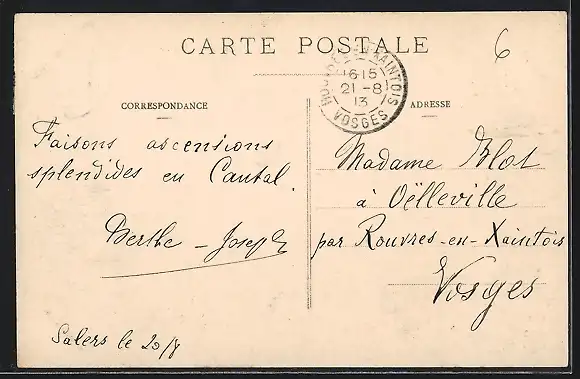 CARTE POSTALE
6
ROUVRES-EN-XAINTOIS
16 15
21 - 8
13
VOSGES
CORRESPONDANCE
ADRESSE
Faisons ascensions
splendides en Cantal.
Berthe - Joseph
Salers le 20/8
Madame Blot
à Oëlleville
par Rouvres-en-Xaintois
Vosges